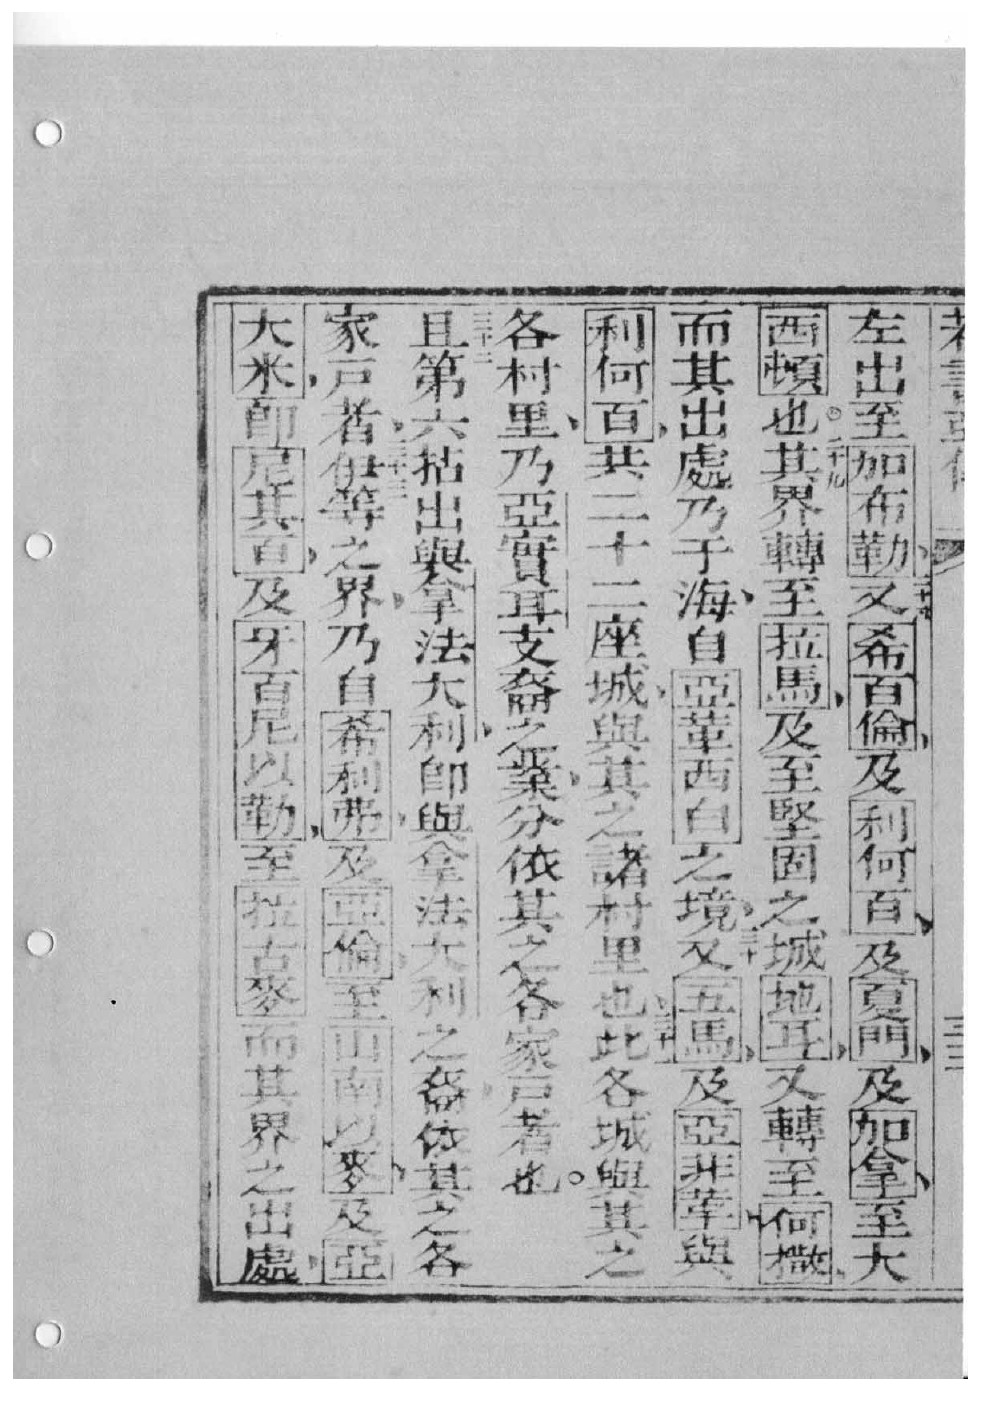 左出至加布勒、二十八又希百倫、及利何百、及夏門、及加拿、至大
西頓也。二十九其界轉至拉馬、及至堅固之城地耳、又轉至何撒、
而其出處乃于海、自亞革西白之境、三十又五馬、及亞非革、與
利何百、共二十二座城、與其之諸村里也、三十一此各城與其之
各村里、乃亞實耳支裔之業、分依其之各家戶者也。
三十二且第六拈出與拿法大利、即與拿法大利之裔、依其之各
家戶者、三十三伊等之界、乃自希利弗、及亞倫、至山南以麥、及亞
大米、即尼其百、及牙百尼以勒、至拉古麥、而其界之出處、